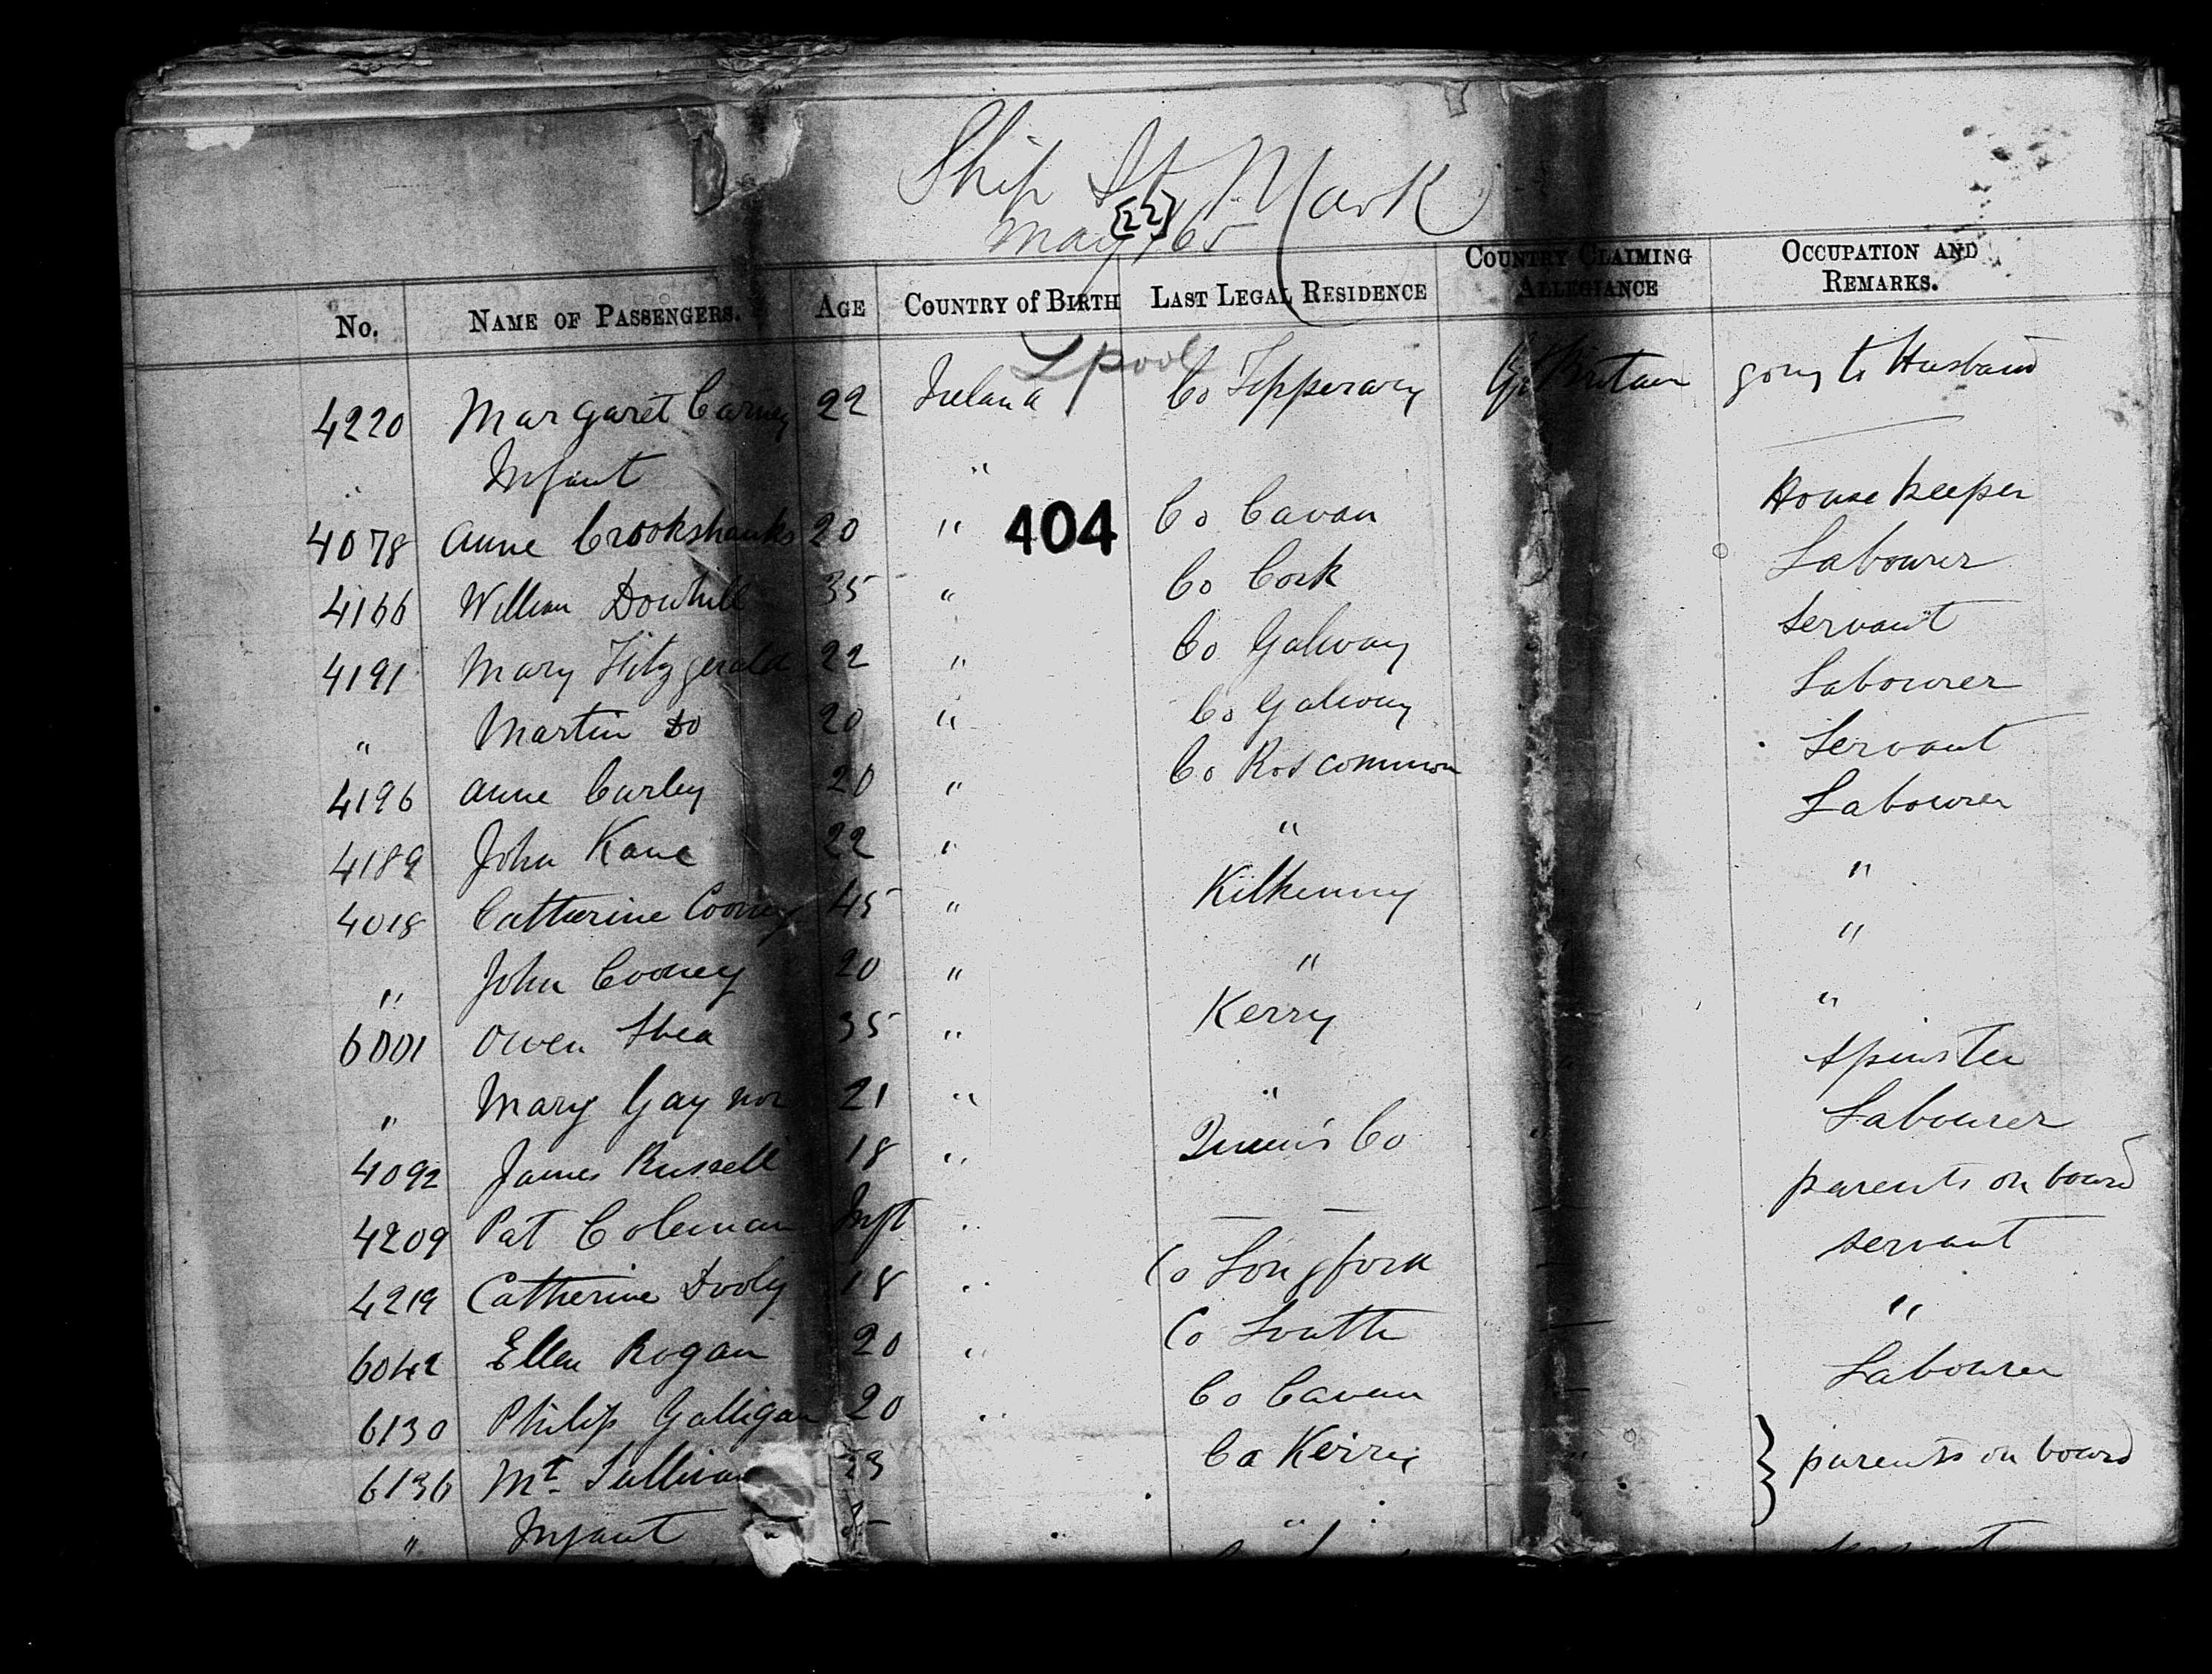 Ship St Mark
[22]
May /65
No. NAME OF PASSENGERS. AGE COUNTRY of BIRTH LAST LEGAL RESIDENCE COUNTRY CLAIMING ALLEGIANCE OCCUPATION AND REMARKS.
Lpool
4220 Margaret Carney 22 Ireland Co Tipperary Gt Britain going to Husband
Infant "
404
4078 Anne Crookshanks 20 " Co Cavan House keeper
4166 William Dowhill 35 " Co Cork Labourer
4191 Mary Fitzgerald 22 " Co Galway Servant
" Martin Do 20 " Co Galway Labourer
4196 Anne Curley 20 " Co Roscommon Servant
4189 John Kane 22 " " Labourer
4018 Catherine Cooney 45 " Kilkenny "
" John Cooney 20 " " "
6001 Owen Shea 35 " Kerry "
" Mary Gaynor 21 " " Spinster
4092 James Russell 18 " Queen's Co Labourer
4209 Pat Coleman Inft " — — parents on board
4219 Catherine Dooly 18 " Co Longford servant
6042 Ellen Rogan 20 " Co Louth "
6130 Philip Galligan 20 " Co Cavan Labourer
6136 Mt Sullivan 23 Co Kerry " } parents on board
" Infant " "
servant